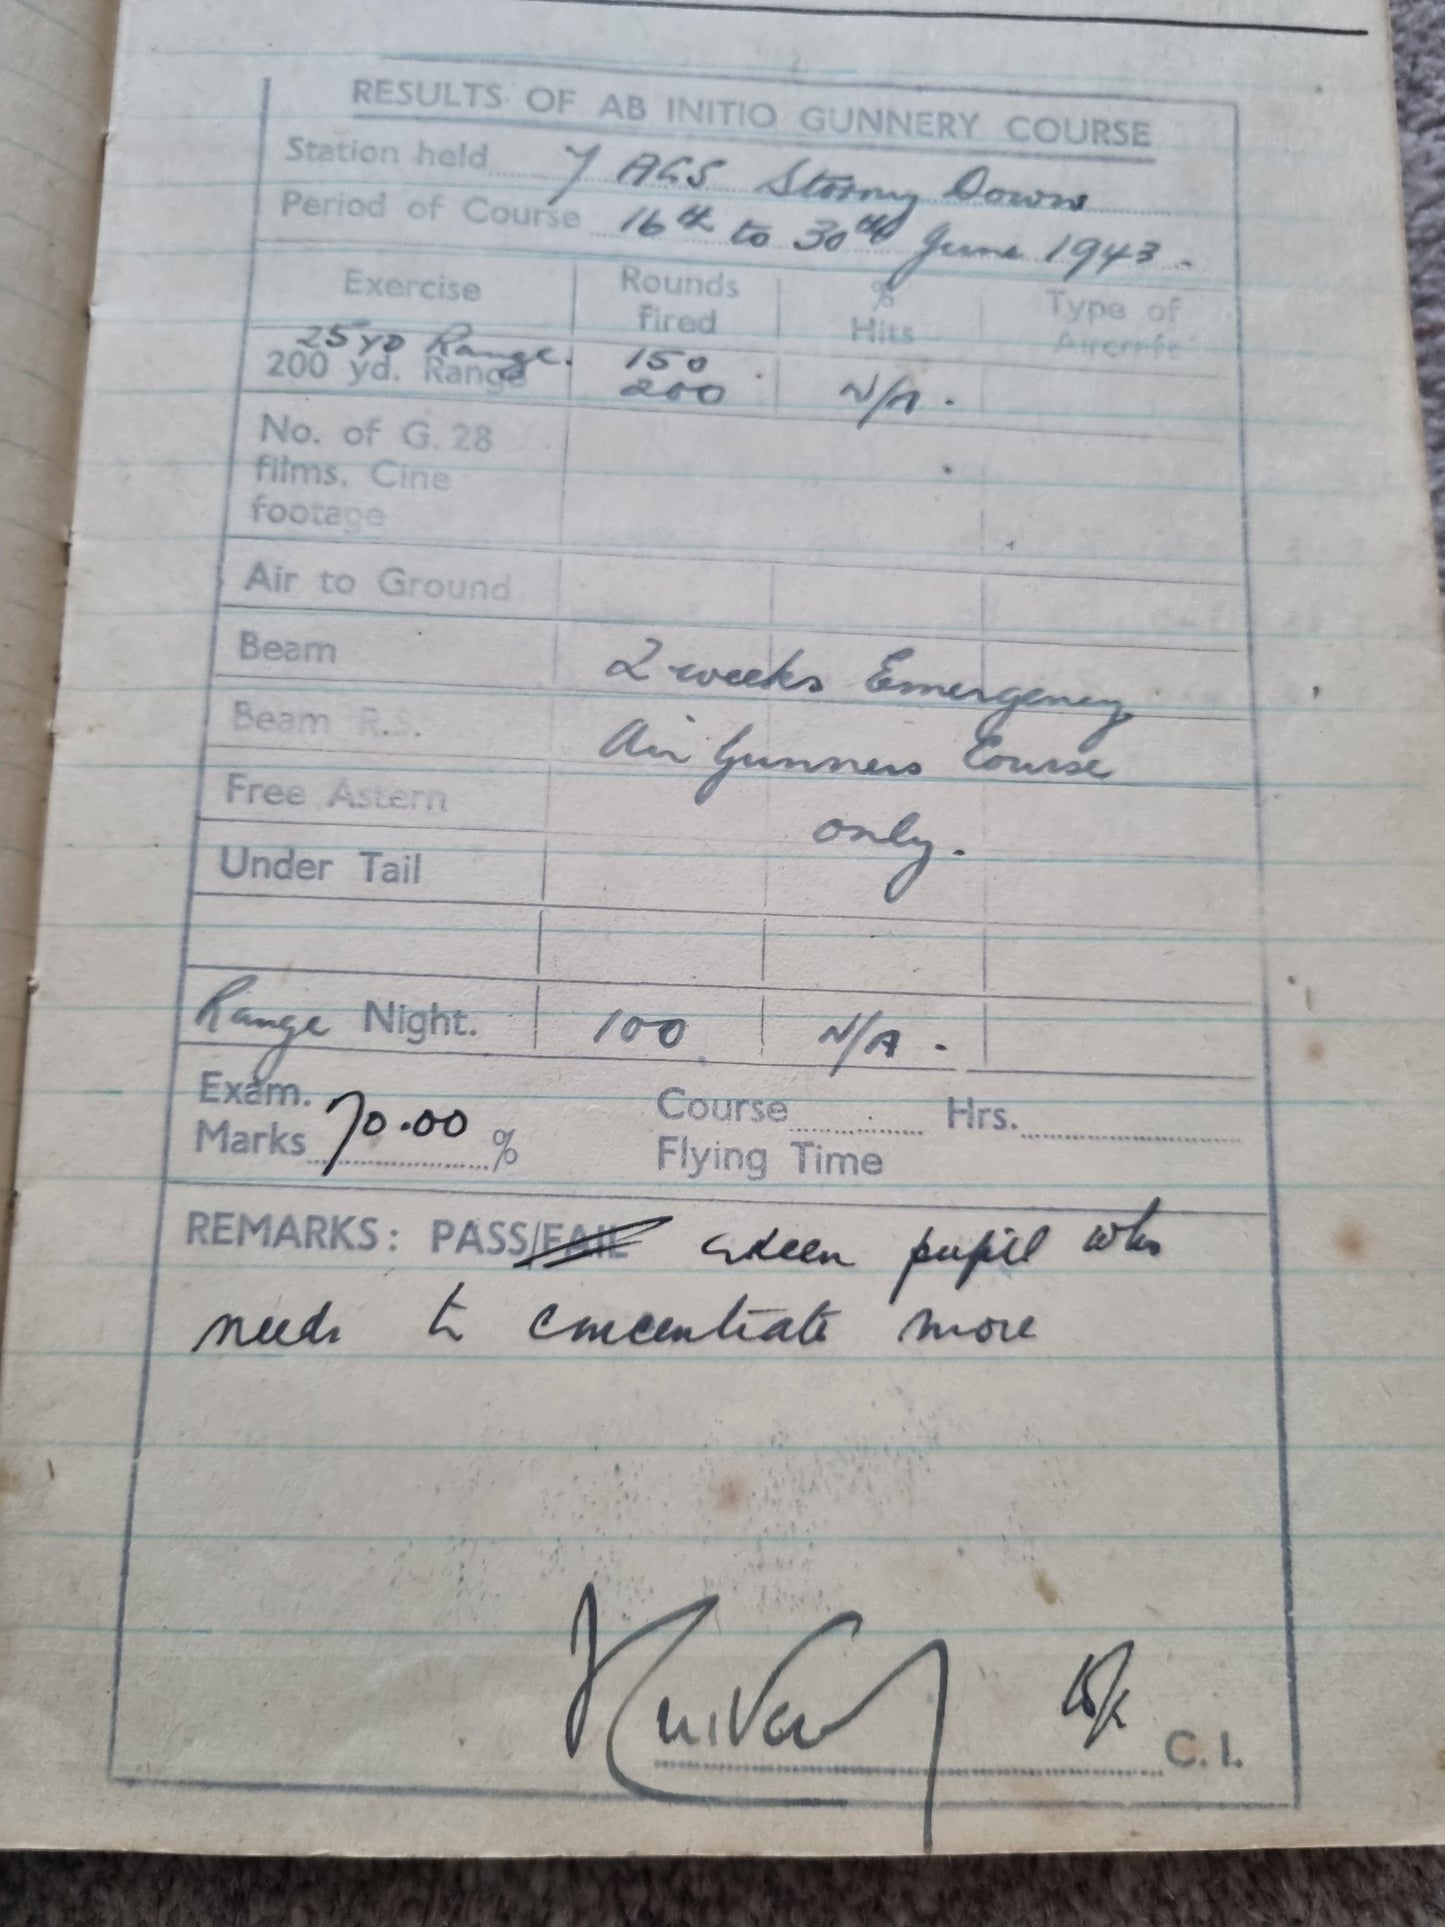 RESULTS OF AB INITIO GUNNERY COURSE
Station held 7 AGS Stormy Down
Period of Course 16th to 30th June 1943.
Exercise Rounds fired % Hits Type of Aircraft
25 YD Range. 150
200 yd. Range 200 N/A.
No. of G.28
films, Cine
footage
Air to Ground
Beam 2 weeks Emergency
Beam R.S. Air Gunners Course
Free Astern only.
Under Tail
Range Night. 100 N/A.
Exam. Course Hrs.
Marks 70.00 % Flying Time
REMARKS: PASS/FAIL keen pupil who
needs to concentrate more
C.I.